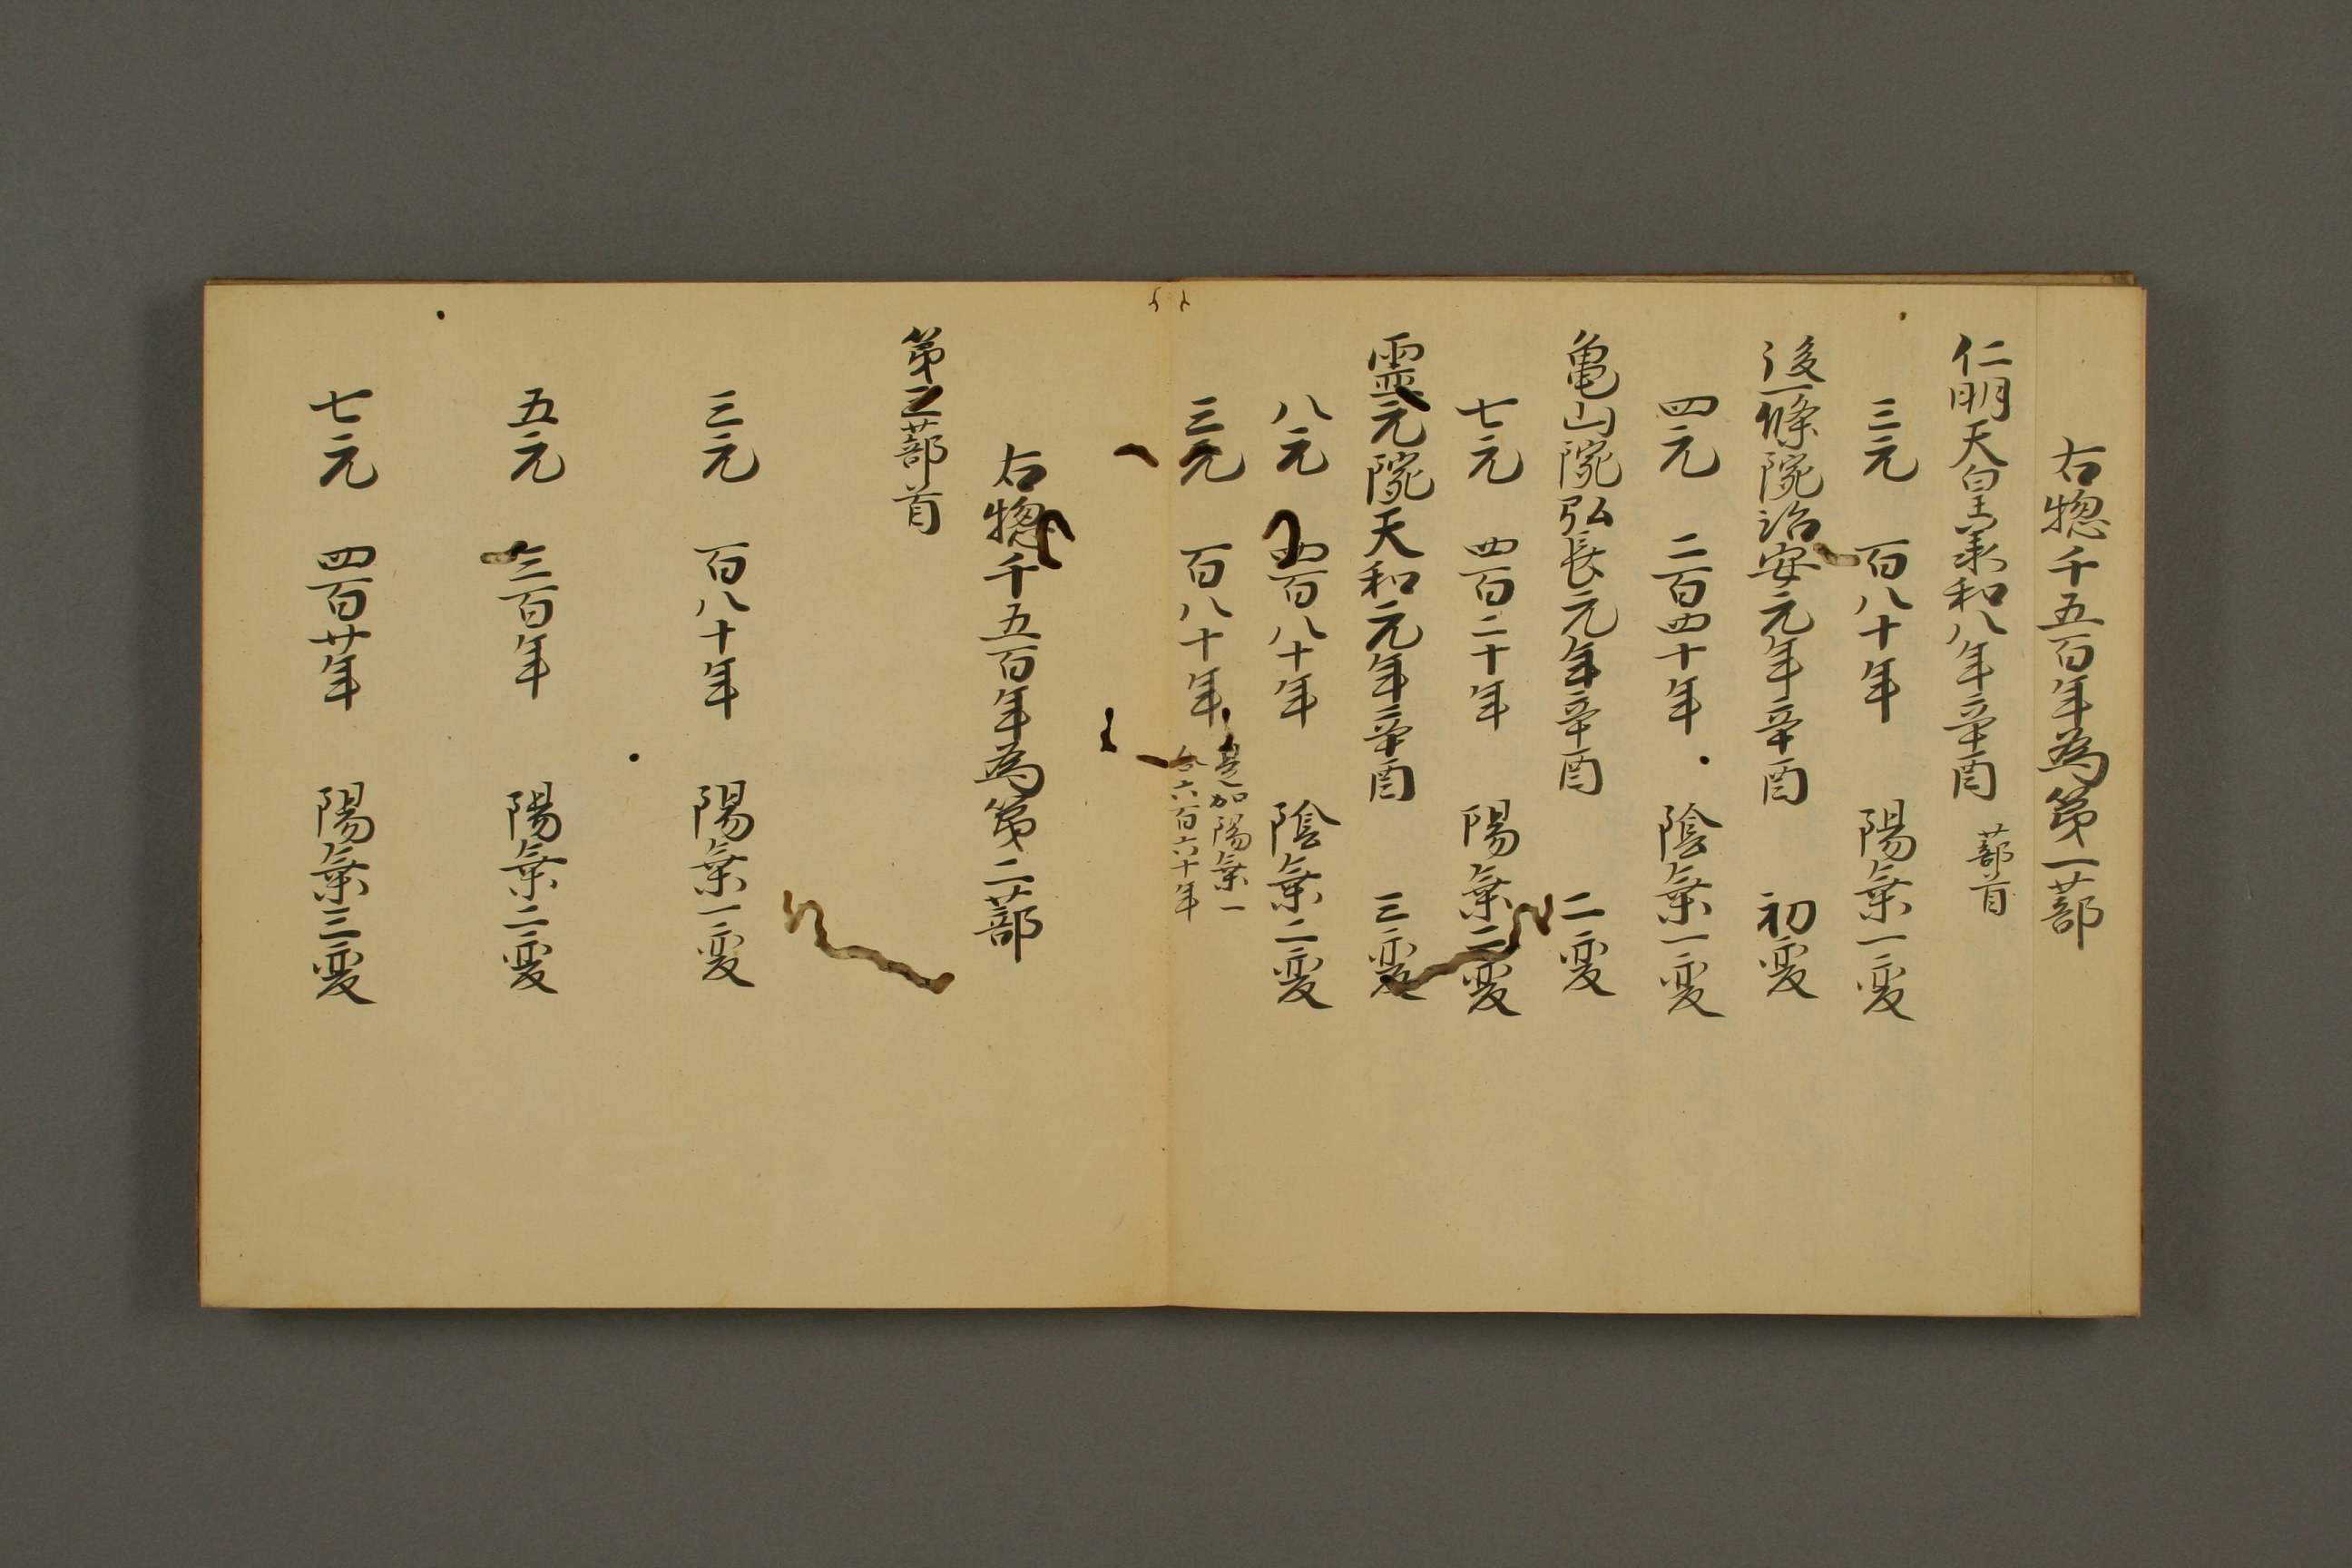 右惣千五百年為第一蔀
仁明天皇承和八年辛酉 蔀首
三元 百八十年 陽棄一変
後一條院治安元年辛酉 初変
四元 二百四十年 陰棄一変
亀山院弘長元年辛酉 二変
七元 四百二十年 陽棄二変
霊元院天和元年辛酉 三変
八元 四百八十年 陰棄二変
三元 百八十年 是加陽棄一
合六百六十年
右惣千五百年為第二蔀
第三蔀首
三元 百八十年 陽棄一変
五元 三百年 陽棄二変
七元 四百廿年 陽棄三変